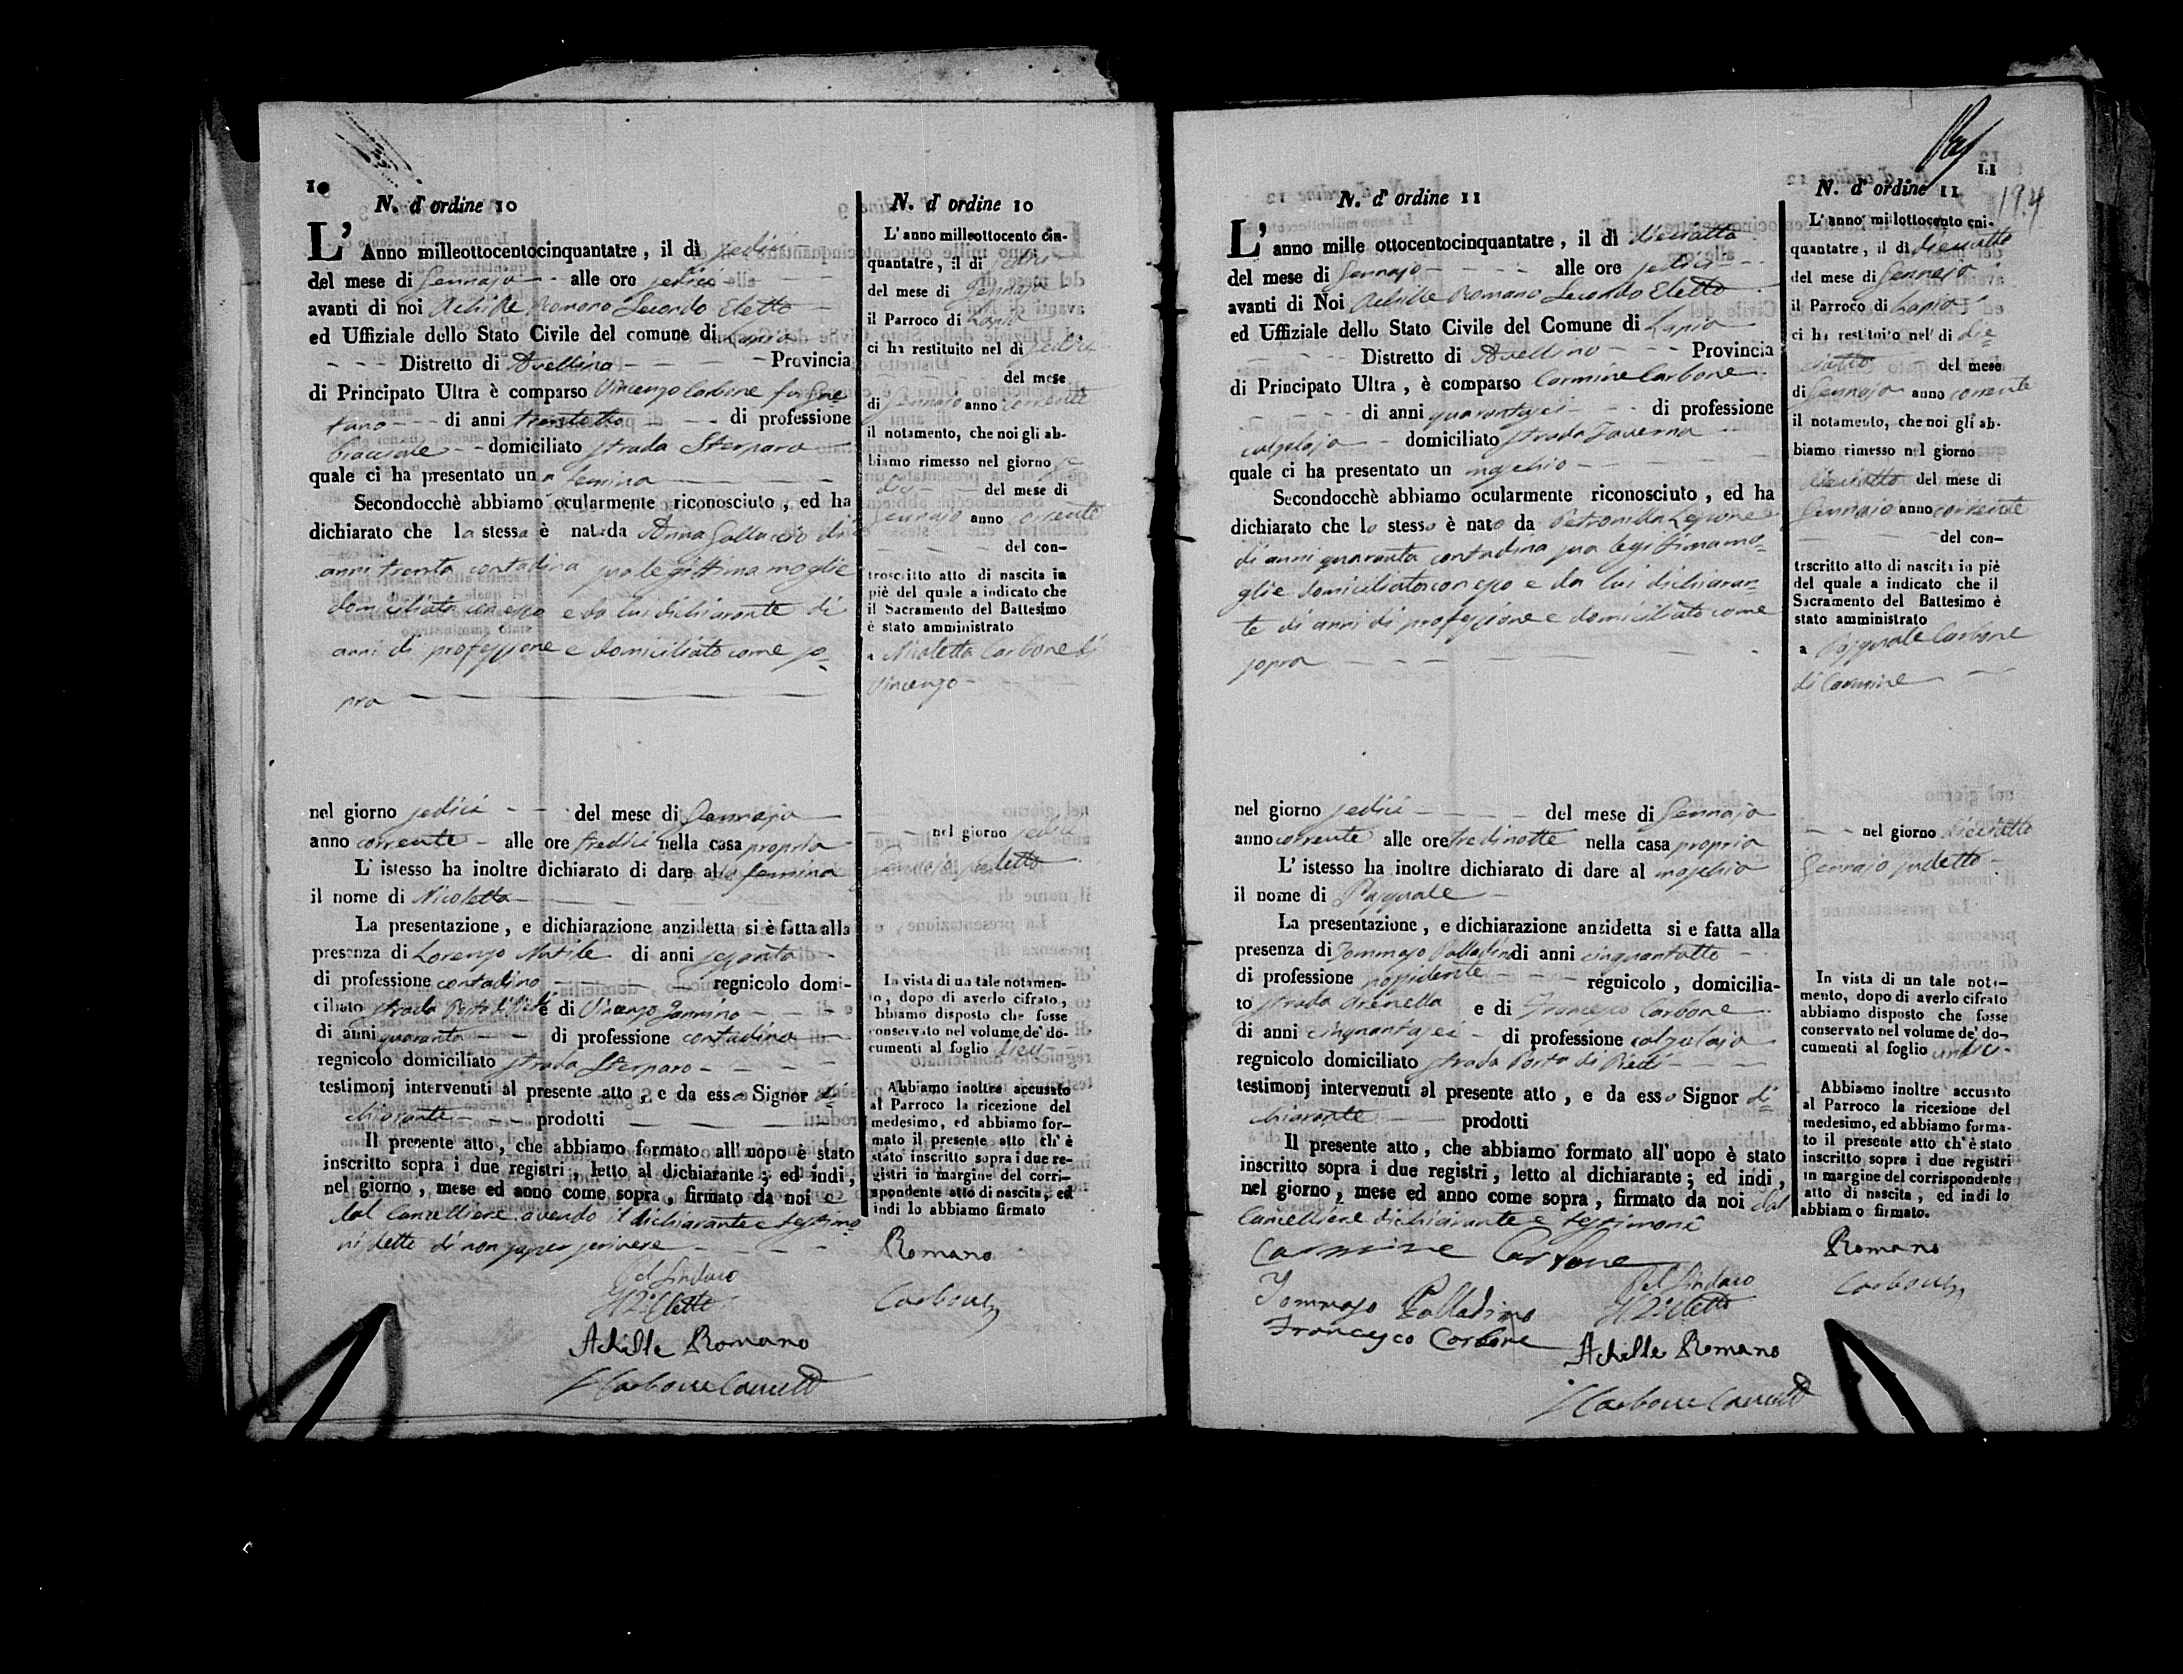 10
N. d' ordine 10
L' Anno milleottocentocinquantatre, il dì sedici
del mese di Gennajo alle ore sedici
avanti di noi Achille Romano Secondo Eletto
ed Uffiziale dello Stato Civile del comune di Lapio
Distretto di Avellino Provincia
di Principato Ultra è comparso Vincenzo Carbone fu Gae
tano di anni trentotto di professione
bracciale domiciliato strada Sterparo
quale ci ha presentato una femina
Secondocchè abbiamo ocularmente riconosciuto, ed ha
dichiarato che la stessa è nata da Anna Galluccio di
anni trenta contadina sua legittima moglie
domiciliata con esso e da lui dichiarante di
anni di professione e domiciliato come so=
pra
nel giorno sedici del mese di Gennajo
anno corrente alle ore tredici nella casa propria
L' istesso ha inoltre dichiarato di dare alla femina
il nome di Nicoletta
La presentazione, e dichiarazione anzidetta si è fatta alla
presenza di Lorenzo Natile di anni sessanta
di professione contadino regnicolo domi-
ciliato strada Porta di Piedi e di Vincenzo Iannino
di anni quaranta di professione contadino
regnicolo domiciliato strada Sterparo
testimonj intervenuti al presente atto, e da esso Signor di=
chiarante prodotti
Il presente atto, che abbiamo formato all' uopo è stato
inscritto sopra i due registri, letto al dichiarante; ed indi,
nel giorno, mese ed anno come sopra, firmato da noi e
dal Cancelliere avendo il dichiarante e testimo
ni detto di non saper scrivere
Pel Sindaco
Il 2° Eletto
Achille Romano
Carbone Cancell
N. d' ordine 10
L' anno milleottocento cin-
quantatre, il di sedici
del mese di Gennajo
il Parroco di Lapio
ci ha restituito nel di sedici
del mese
di Gennajo anno corrente
il notamento, che noi gli ab-
biamo rimesso nel giorno se
dici del mese di
Gennajo anno corrente
del con-
troscritto atto di nascita in
piè del quale a indicato che
il Sacramento del Battesimo
è stato amministrato
a Nicoletta Carbone di
Vincenzo
nel giorno sedici
Gennajo sudetto
In vista di un tale notamen-
to, dopo di averlo cifrato,
abbiamo disposto che fosse
conservato nel volume de' do-
cumenti al foglio dieci
Abbiamo inoltre accusato
al Parroco la ricezione del
medesimo, ed abbiamo for-
mato il presente atto ch' è
stato inscritto sopra i due re-
gistri in margine del corri-
spondente atto di nascita, ed
indi lo abbiamo firmato
Romano
Carbone
11
194
N. d' ordine 11
L' anno mille ottocentocinquantatre, il di dieciotto
del mese di Gennajo alle ore sedici
avanti di Noi Achille Romano Secondo Eletto
ed Uffiziale dello Stato Civile del Comune di Lapio
Distretto di Avellino Provincia
di Principato Ultra, è comparso Carmine Carbone
di anni quarantasei di professione
calzolajo domiciliato strada Taverna
quale ci ha presentato un maschio
Secondocchè abbiamo ocularmente riconosciuto, ed ha
dichiarato che lo stesso è nato da Petronilla
di anni quaranta contadina sua legittima mo=
glie domiciliata con esso e da lui dichiaran=
te di anni di professione e domiciliato come
sopra
nel giorno sedici del mese di Gennajo
anno corrente alle ore tredinotte nella casa propria
L' istesso ha inoltre dichiarato di dare al maschio
il nome di Pasquale
La presentazione, e dichiarazione anzidetta si e fatta alla
presenza di Tommaso Palladino di anni cinquantotto
di professione possidente regnicolo, domicilia-
to strada Arenella e di Francesco Carbone
di anni cinquantasei di professione calzolajo
regnicolo domiciliato strada Porta di Piedi
testimonj intervenuti al presente atto, e da esso Signor di=
chiarante prodotti
Il presente atto, che abbiamo formato all' uopo è stato
inscritto sopra i due registri, letto al dichiarante; ed indi,
nel giorno, mese ed anno come sopra, firmato da noi dal
Cancelliere dichiarante e testimonî
Carmine Carbone
Tommaso Palladino
Francesco Carbone
Pel Sindaco
Il 2° Eletto
Achille Romano
Carbone Cancell
N. d' ordine 11
L' anno milottocento cni-
quantatre, il di dieciotto
del mese di Gennajo
il Parroco di Lapio
ci ha restituito nel di die=
ciotto del mese
di Gennajo anno corrente
il notamento, che noi gli ab-
biamo rimesso nel giorno
dieciotto del mese di
Gennajo anno corrente
del con-
trscritto atto di nascita in piè
del quale a indicato che il
Sacramento del Battesimo è
stato amministrato
a Pasquale Carbone
di Carmine
nel giorno dieciotto
Gennajo sudetto
In vista di un tale nota-
mento, dopo di averlo cifrato
abbiamo disposto che fosse
conservato nel volume de' do-
cumenti al foglio undici
Abbiamo inoltre accusato
al Parroco la ricezione del
medesimo, ed abbiamo forma-
to il presente atto ch' è stato
inscritto sopra i due registri
in margine del corrispondente
atto di nascita, ed indi lo
abbiamo firmato.
Romano
Carbone